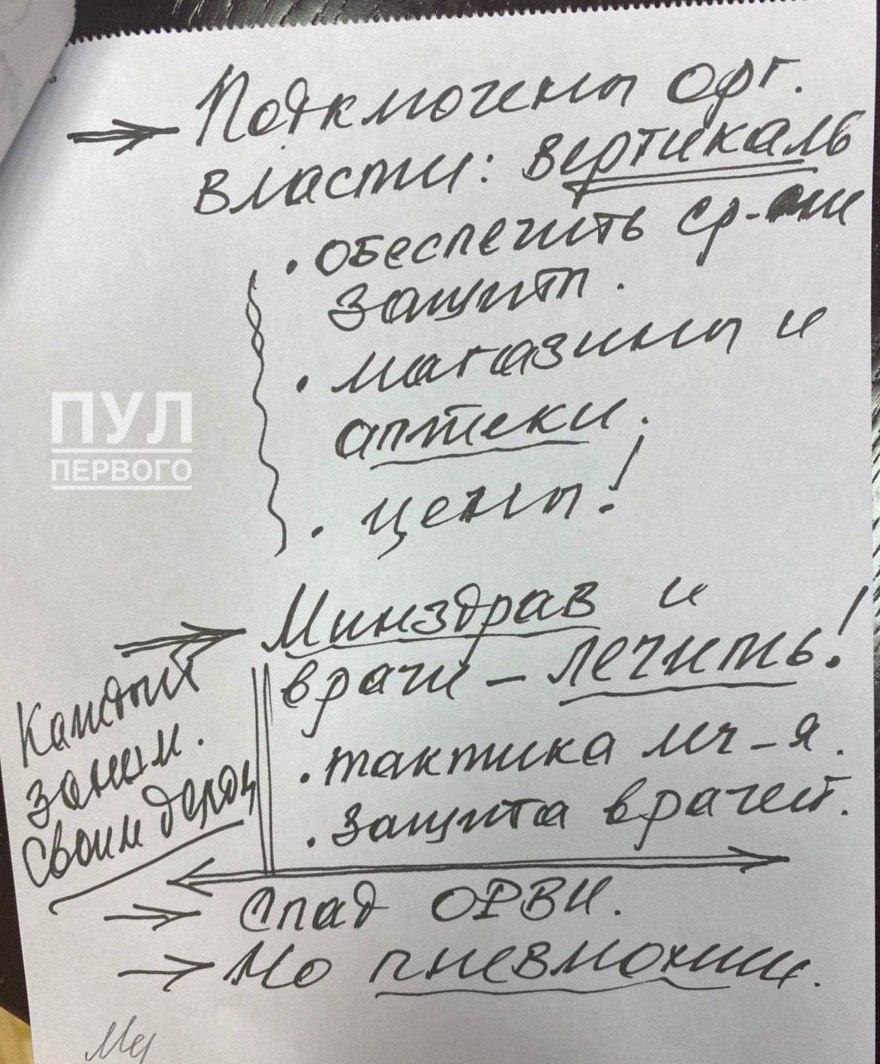 → Подключены орг.
власти: вертикаль
• обеспечить ср-ми
защит.
• магазины и
аптеки.
• цены!
ПУЛ
ПЕРВОГО
→ Минздрав и
врачи – лечить!
• тактика леч-я.
• защита врачей.
Каждый
заним.
своим делом
→ Спад ОРВИ.
→ Но пневмонии.